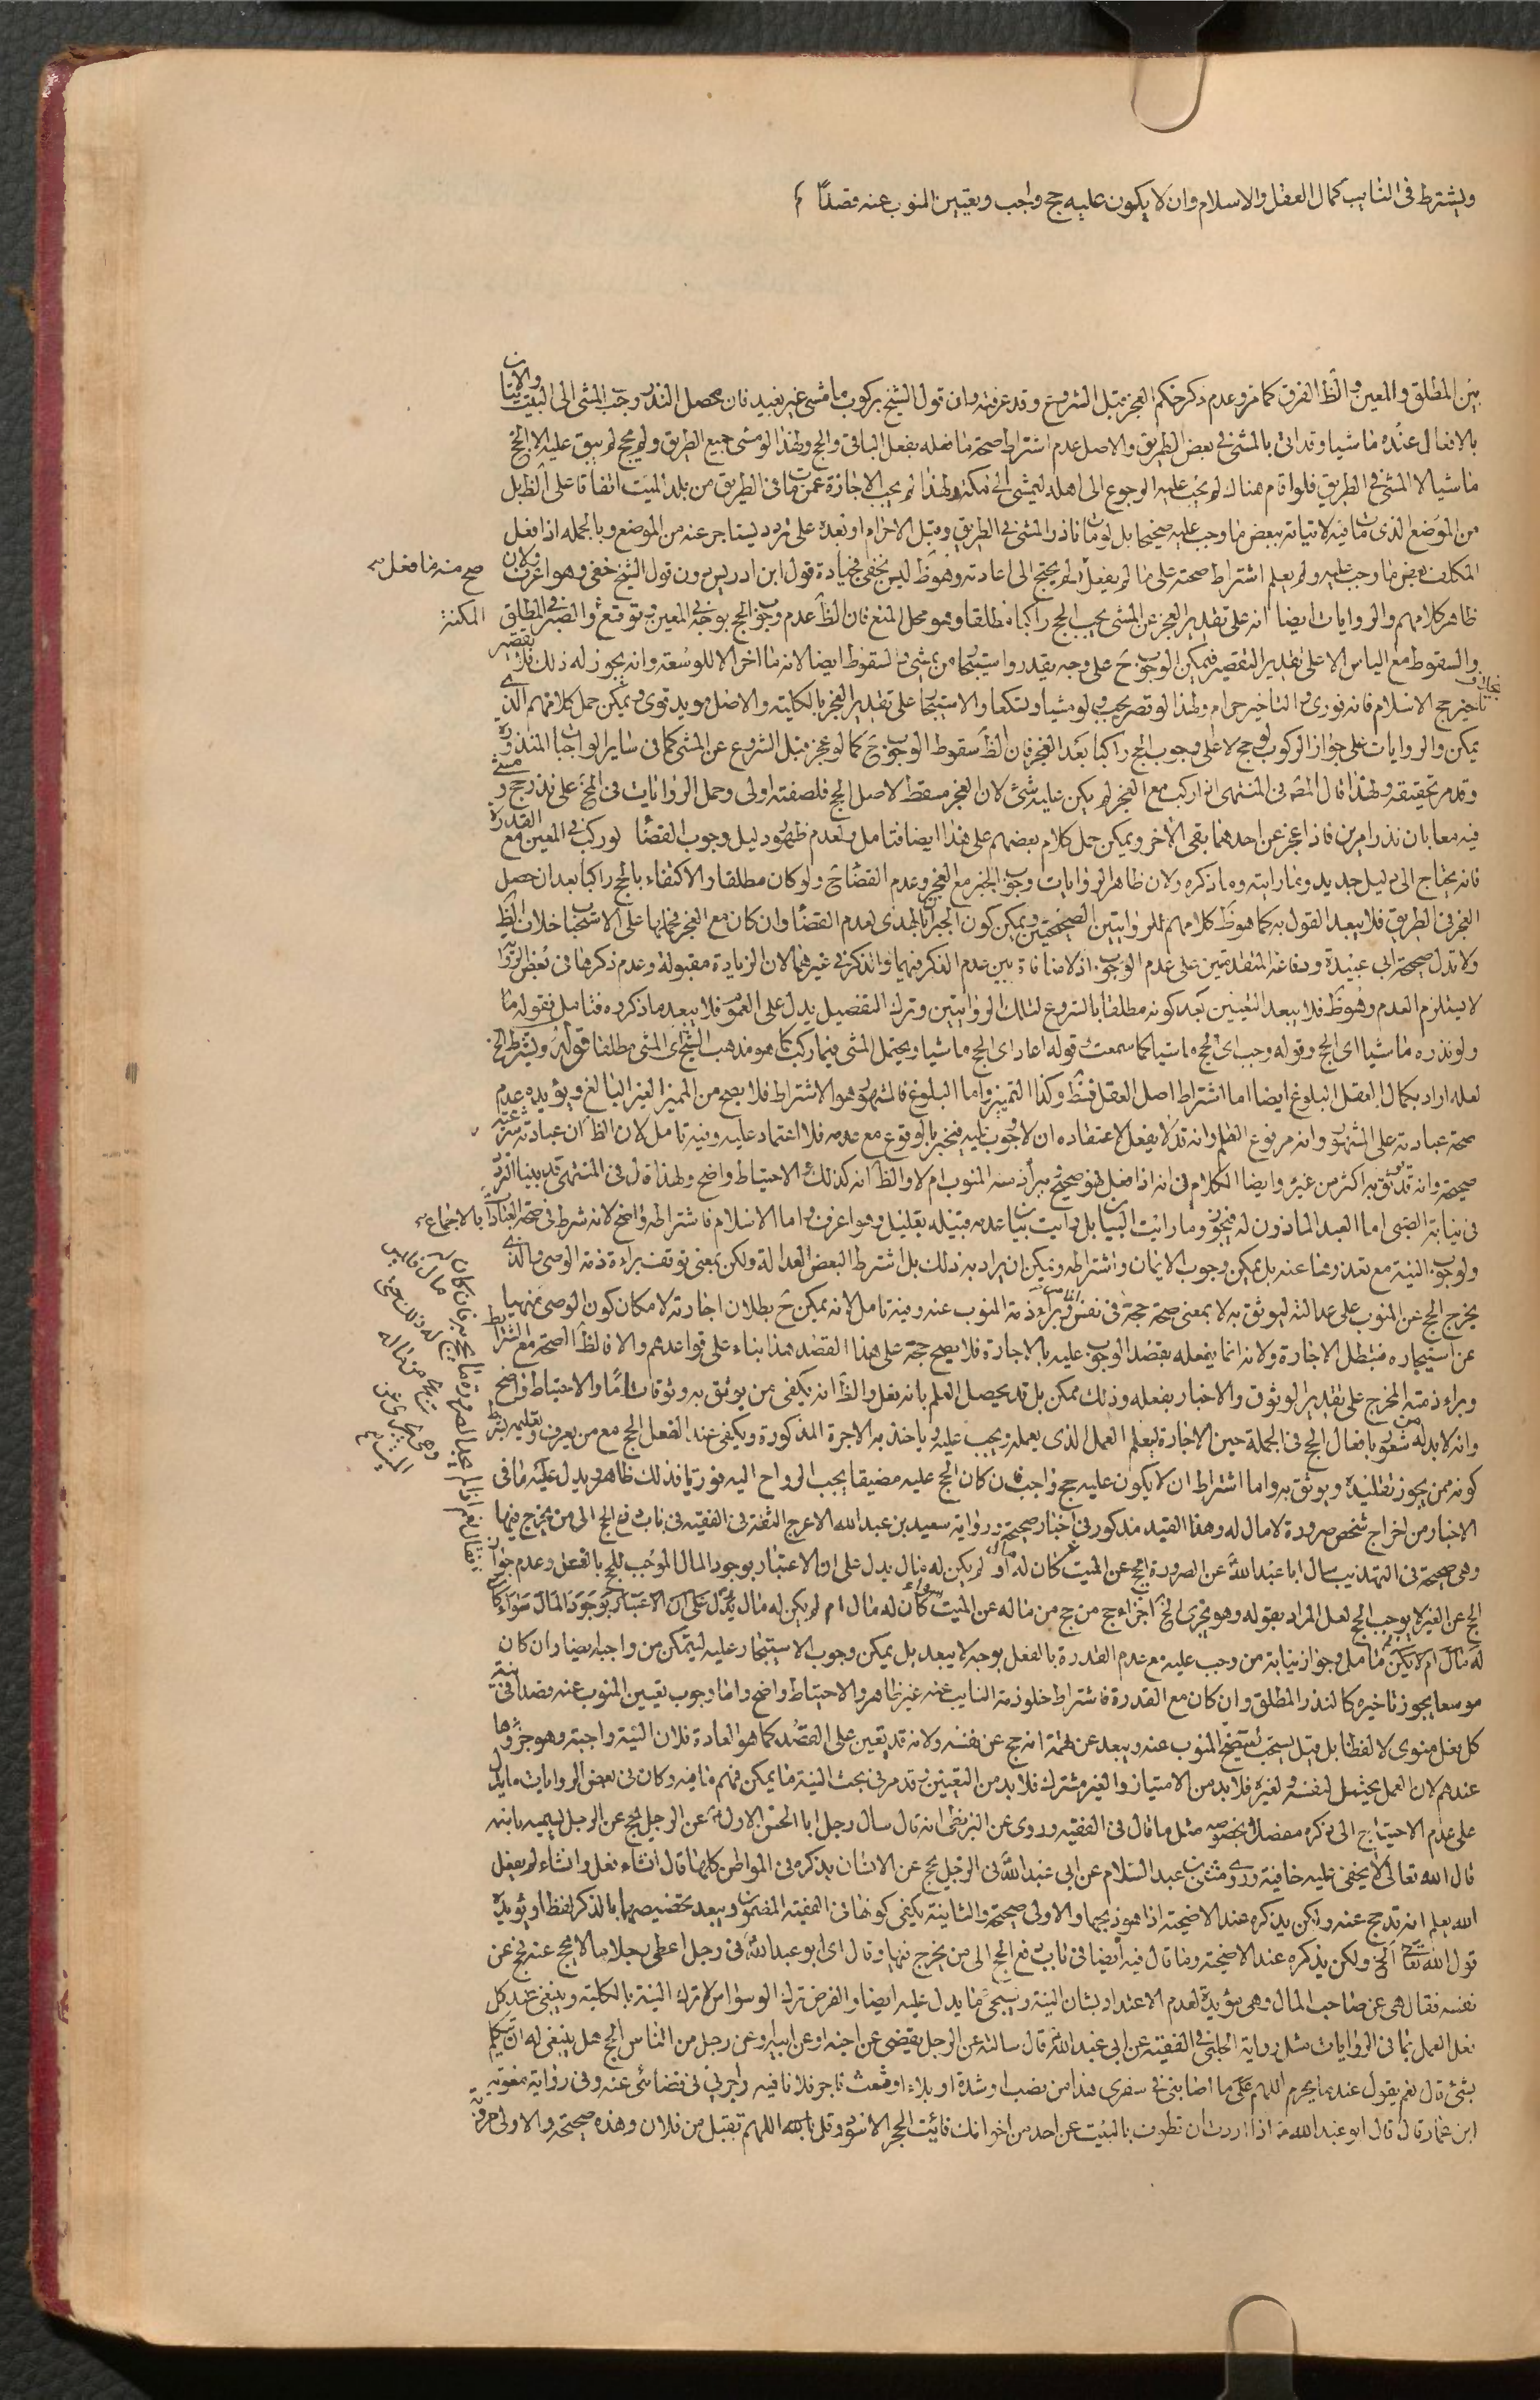 ويشترط فى النايب كمال العقل والاسلام وان لا يكون عليه حج واجب وتعيين المنوب عنه قصداً
بين المطلق والمعين والظ الفرق كما مر وعدم ذكر حكم العجز قبل الشروع وقد عرفته وان قول الشيخ بركوب ما مشى غير بعيد فان محصل النذر وجب المشى الى البيت والاتيان
بالافعال عنده ماشيا وقد اتى بالمشى فى بعض الطريق والاصل عدم اشتراط صحة ما فعله بفعل الباقى والحج ولهذا لو مشى جميع الطريق ولم يحج لم يبق عليه الا الحج
ماشيا لا المشى فى الطريق فلو اقام هناك لم يجب عليه الرجوع الى اهله ليمشى الى مكة ولهذا لم يجب الاجارة عمن مات فى الطريق من بلد الميت اتفاقا على الظ بل
من الموضع الذى مات فيه لاتيانه ببعض ما وجب عليه صحيحا بل لو مات ناذر المشى فى الطريق وقبل الاحرام او بعده على تردد ليستاجر عنه من الموضع وبالجمله اذا فعل
المكلف بعض ما وجب عليه ولم يعلم اشتراط صحته على ما لم يفعل لم يحتج الى اعادته وهو ظ ليس بخفى فجيادة قول ابن ادريس دون قول الشيخ خفى وهو اعرف ولان
صح منه ما فعل
ظاهر كلامهم والروايات ايضا انه على تقدير العجز عن المشى يجب الحج راكبا مطلقا وهو محل المنع فان الظ عدم وجوب الحج بوجه فى المعين مع توقع والصبر فى المطلق
المكنة
والسقوط مع الياس الا على تقدير التقصير فيمكن الوجوب ح على وجه يقدر واستيجار من يمشى والسقوط ايضا لانه ما اخر الا للوسعة وانه يجوز له ذلك فلا تقصير
تاخير حج الاسلام فانه فورى والتاخير حرام ولهذا لو قصر يجب ولو مشيا وتسكعا والاستيجار على تقدير العجز بالكلية والاصل مويد قوى ويمكن حمل كلامهم الذى
يمكن والروايات على جواز الركوب لو حج لا على وجوب الحج راكبا بعد العجز فان الظ سقوط الوجوب ح كما لو عجز قبل الشروع عن المشى كما فى ساير الواجبات المنذورة
وقد مر تحقيقه ولهذا قال المصه فى المنتهى لو ركب مع العجز لم يكن عليه شئ لان العجز مسقط لاصل الحج فلصفته اولى وحمل الروايات فى الحج على نذر حج ومشى
فيه معا بان نذر امرين فاذا عجز عن احدهما بقى الاخر ويمكن حمل كلام بعضهم على هذا ايضا فتامل ولعدم ظهور دليل وجوب القضا لو ركب فى المعين مع القدرة
فانه يحتاج الى دليل جديد وما رايته وما ذكره ولان ظاهر الروايات وجوب الجبر مع العجز وعدم القضاء ح ولو كان مطلقا والاكتفاء بالحج راكبا بعد ان حصل
العجز فى الطريق فلا يبعد القول به كما هو ظ كلامهم للروايتين الصحيحتين ويمكن كون الجبران بالهدى لعدم القضا وان كان مع العجز فحملها على الاستحباب خلاف الظ
ولا تدل صحيحة ابى عبيدة ورفاعة المتقدمتين على عدم الوجوب اذ لا منافاة بين عدم الذكر فيهما والذكر فى غيرهما لان الزيادة مقبولة وعدم ذكرها فى بعض الروايات
لا يستلزم العدم وهو ظ فلا يبعد التعيين بعد كونه مطلقا بالشروع لتلك الروايتين وترك التفصيل يدل على العموم فلا يبعد ما ذكروه فتامل فقوله ما
ولو نذره ماشيا اى الحج وقوله وجب اى حجه ماشيا كما سمعت قوله اعاد اى الحج ماشيا ويحتمل المشى فيما ركب كما هو مذهب الشيخ اى المشى مطلقا قوله ويشترط الخ
لعله اراد بكمال العقل البلوغ ايضا اما اشتراط اصل العقل فظ وكذا التميز واما البلوغ فالمشهور هو الاشتراط فلا يصح من المميز الغير البالغ ويؤيده عدم
صحة عبادته على المشهور وانه مرفوع القلم وانه قد لا يفعل لاعتقاده ان لا وجوب عليه فيخبر بالوقوع مع عدمه فلا اعتماد عليه وفيه تامل لان الظ ان عبادته شرعية
صحيحة وانه قد يوثق به اكثر من غيره وايضا الكلام فى انه اذا فعل فهو صحيح مبرأ ذمته المنوب ام لا والظ انه كذلك والاحتياط واضح ولهذا قال فى المنتهى قد بينا التردد
فى نيابة الصبى اما العبد الماذون له فيجوز وما رايت البيان بل رايت بيان عدمه قبيله بقليل وهو اعرف واما الاسلام فاشتراطه واضح لانه شرط فى صحة العبادات بالاجماع
ولوجوب النية مع تعذرها عنه بل يمكن وجوب الايمان واشتراطه ويمكن ان يراد به ذلك بل اشترط البعض العدالة ولكن بمعنى توقف براءة ذمة الوصى والذى
يخرج الحج عن المنوب على عدالته ليوثق به لا بمعنى صحة حجة فى نفس وبراءة ذمة المنوب عنه وفيه تامل لانه يمكن ح بطلان اجارته لامكان كون الوصى منهيا
عن استيجاره فتبطل الاجارة ولانه انما يفعله بقصد الوجوب عليه بالاجارة فلا يصح حجة على هذا القصد هذا بناء على قواعدهم والا فالظ الصحة مع الشرايط
وبراءة ذمته المخرج على تقدير الوثوق والاخبار بفعله وذلك ممكن بل قد يحصل العلم بانه فعل والظ انه يكفى من يوثق به وثوقا تاما والاحتياط واضح
وانه لا بد له من شعور بافعال الحج فى الجملة حين الاجارة ليعلم العمل الذى يعمله ويجب عليه وياخذ به الاجرة المذكورة ويكفى عند الفعل الحج مع من يعرف وتعليمه بشرط
كونه ممن يجوز تقليده ويوثق به واما اشتراط ان لا يكون عليه حج واجب فان كان الحج عليه مضيقا يجب الرواح اليه فوريا فذلك ظاهر ويدل عليه ما فى
الاخبار من اخراج شخص صرورة لا مال له وهذا القيد مذكور فى اخبار صحيحة ورواية سعيد بن عبدالله الاعرج الثقة فى الفقيه فى باب دفع الحج الى من يخرج فيها
وهى صحيحة فى التهذيب سال ابا عبدالله عن الصرورة ايحج عن الميت كان له مال او لم يكن له مال يدل على ان الاعتبار بوجود المال الموجب للحج بالفعل وعدم جواز
الحج عن الغير لا يوجب الحج لعل المراد بقوله وهو يجزى الخ اجزاء حج من حج من ماله عن الميت سواء كان له مال ام لم يكن له مال يدل على ان الاعتبار بوجود المال سواء كان
له مال ام لا يكن فتامل وجواز نيابة من وجب عليه مع عدم القدرة بالفعل بوجه لا يبعد بل يمكن وجوب الاستيجار عليه ليتمكن من واجبه ايضا وان كان
موسعا يجوز تاخيره كالنذر المطلق وان كان مع القدرة فاشتراط خلو ذمة النايب عنه غير ظاهر والاحتياط واضح واما وجوب تعيين المنوب عنه قصدا فى نية
كل فعل منوى لا لفظا بل قيل يستحب لتضح المنوب عنه ويبعد عن تهمة انه حج عن نفسه ولانه قد يعين على القصد كما هو العادة فلان النية واجبة وهو جزؤها
عندهم لان العمل يحتمل لنفسه ولغيره فلا بد من الامتياز والغير مشترك فلا بد من التعيين وقد مر فى بحث النية ما يمكن فهم ما فيه وكان فى بعض الروايات ما يدل
على عدم الاحتياج الى ذكره مفصلا بخصوصه مثل ما قال فى الفقيه وروى عن البزنطى انه قال سال رجل ابا الحسن الاول عن الرجل يحج عن الرجل يسميه باسمه
قال الله تعالى لا يخفى عليه خافية وروى مثنى بن عبد السلام عن ابى عبدالله فى الرجل يحج عن الانسان يذكره فى المواطن كلها قال ان شاء فعل وان شاء لم يفعل
الله يعلم انه قد حج عنه ولكن يذكره عند الاضحية اذا هو ذبحها والاولى صحيحة والثانية يكفى كونها فى الفقيه المضمون ويبعد تخصيصهما بالذكر لفظا ويؤيده
قول الله تعالى الخ ولكن يذكره عند الاضحية وما قال فيه ايضا فى باب دفع الحج الى من يخرج فيها وقال اى ابو عبدالله فى رجل اعطى رجلا مالا يحج عنه فحج عن
نفسه فقال هى عن صاحب المال وهى مؤيدة لعدم الاعتداد بشان النية وسيجئ ما يدل عليه ايضا والغرض ترك الوسواس لا ترك النية بالكلية وينبغى عند كل
فعل العمل بما فى الروايات مثل رواية الحلبى فى الفقيه عن ابى عبدالله قال سالته عن الرجل يقضى عن اخيه او عن ابيه او عن رجل من الناس الحج هل ينبغى له ان يتكلم
بشئ قال نعم يقول عند ما يحرم اللهم ما اصابنى فى سفرى هذا من نصب او شدة او بلاء او شعث فاجر فلانا فيه واجرنى فى قضائى عنه وفى رواية معوية
ابن عمار قال قال ابو عبدالله اذا اردت ان تطوف بالبيت عن احد من اخوانك فائت الحجر الاسود وقل بسم الله اللهم تقبل من فلان وهذه صحيحة والاولى
فقال نعم اذا لم يجد الصرورة ما يحج به فان كان له
مال فليس له ذلك حتى
يحج من ماله
وهى تجزى عن
الميت